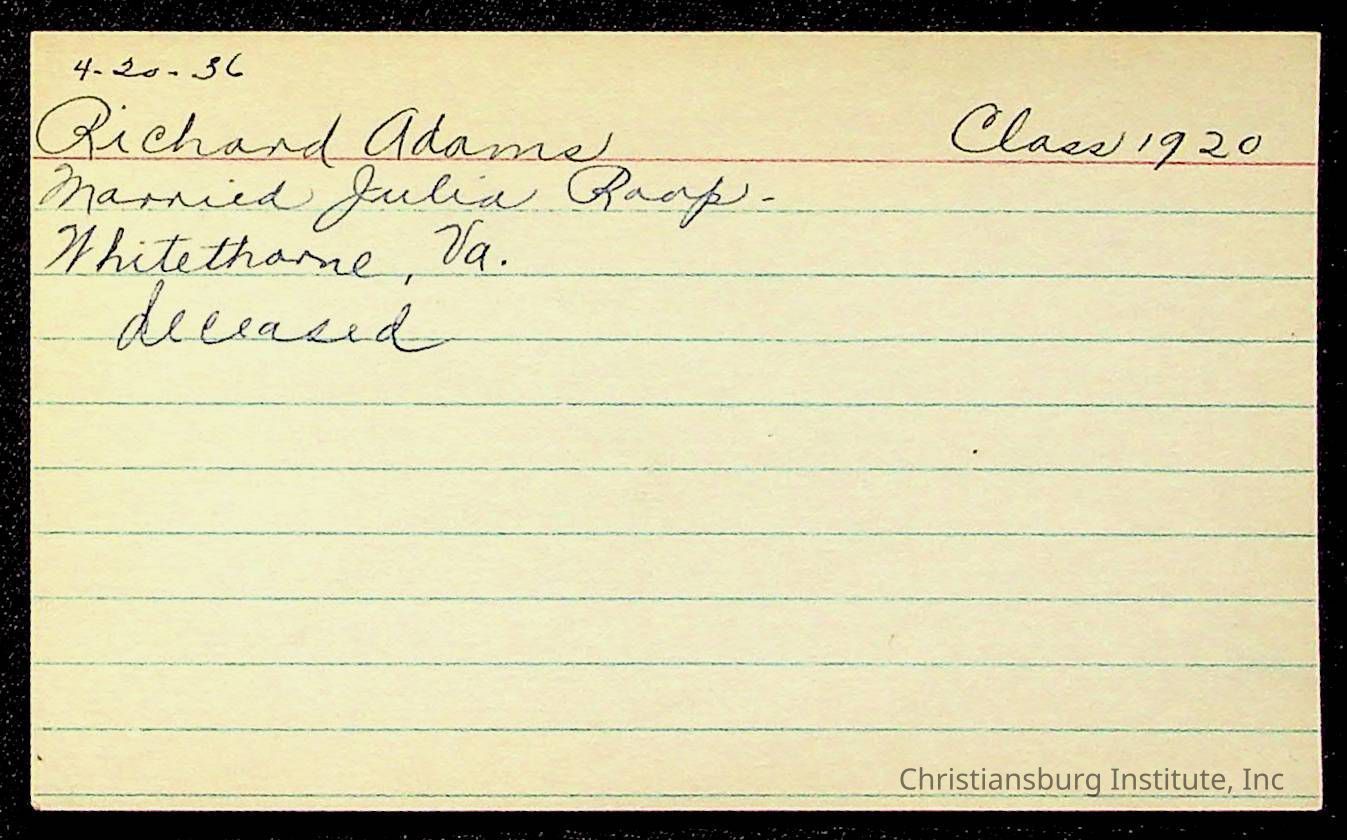 4-20-36
Richard Adams Class 1920
Married Julia Roop-
Whitethorne, Va.
deceased
Christiansburg Institute, Inc